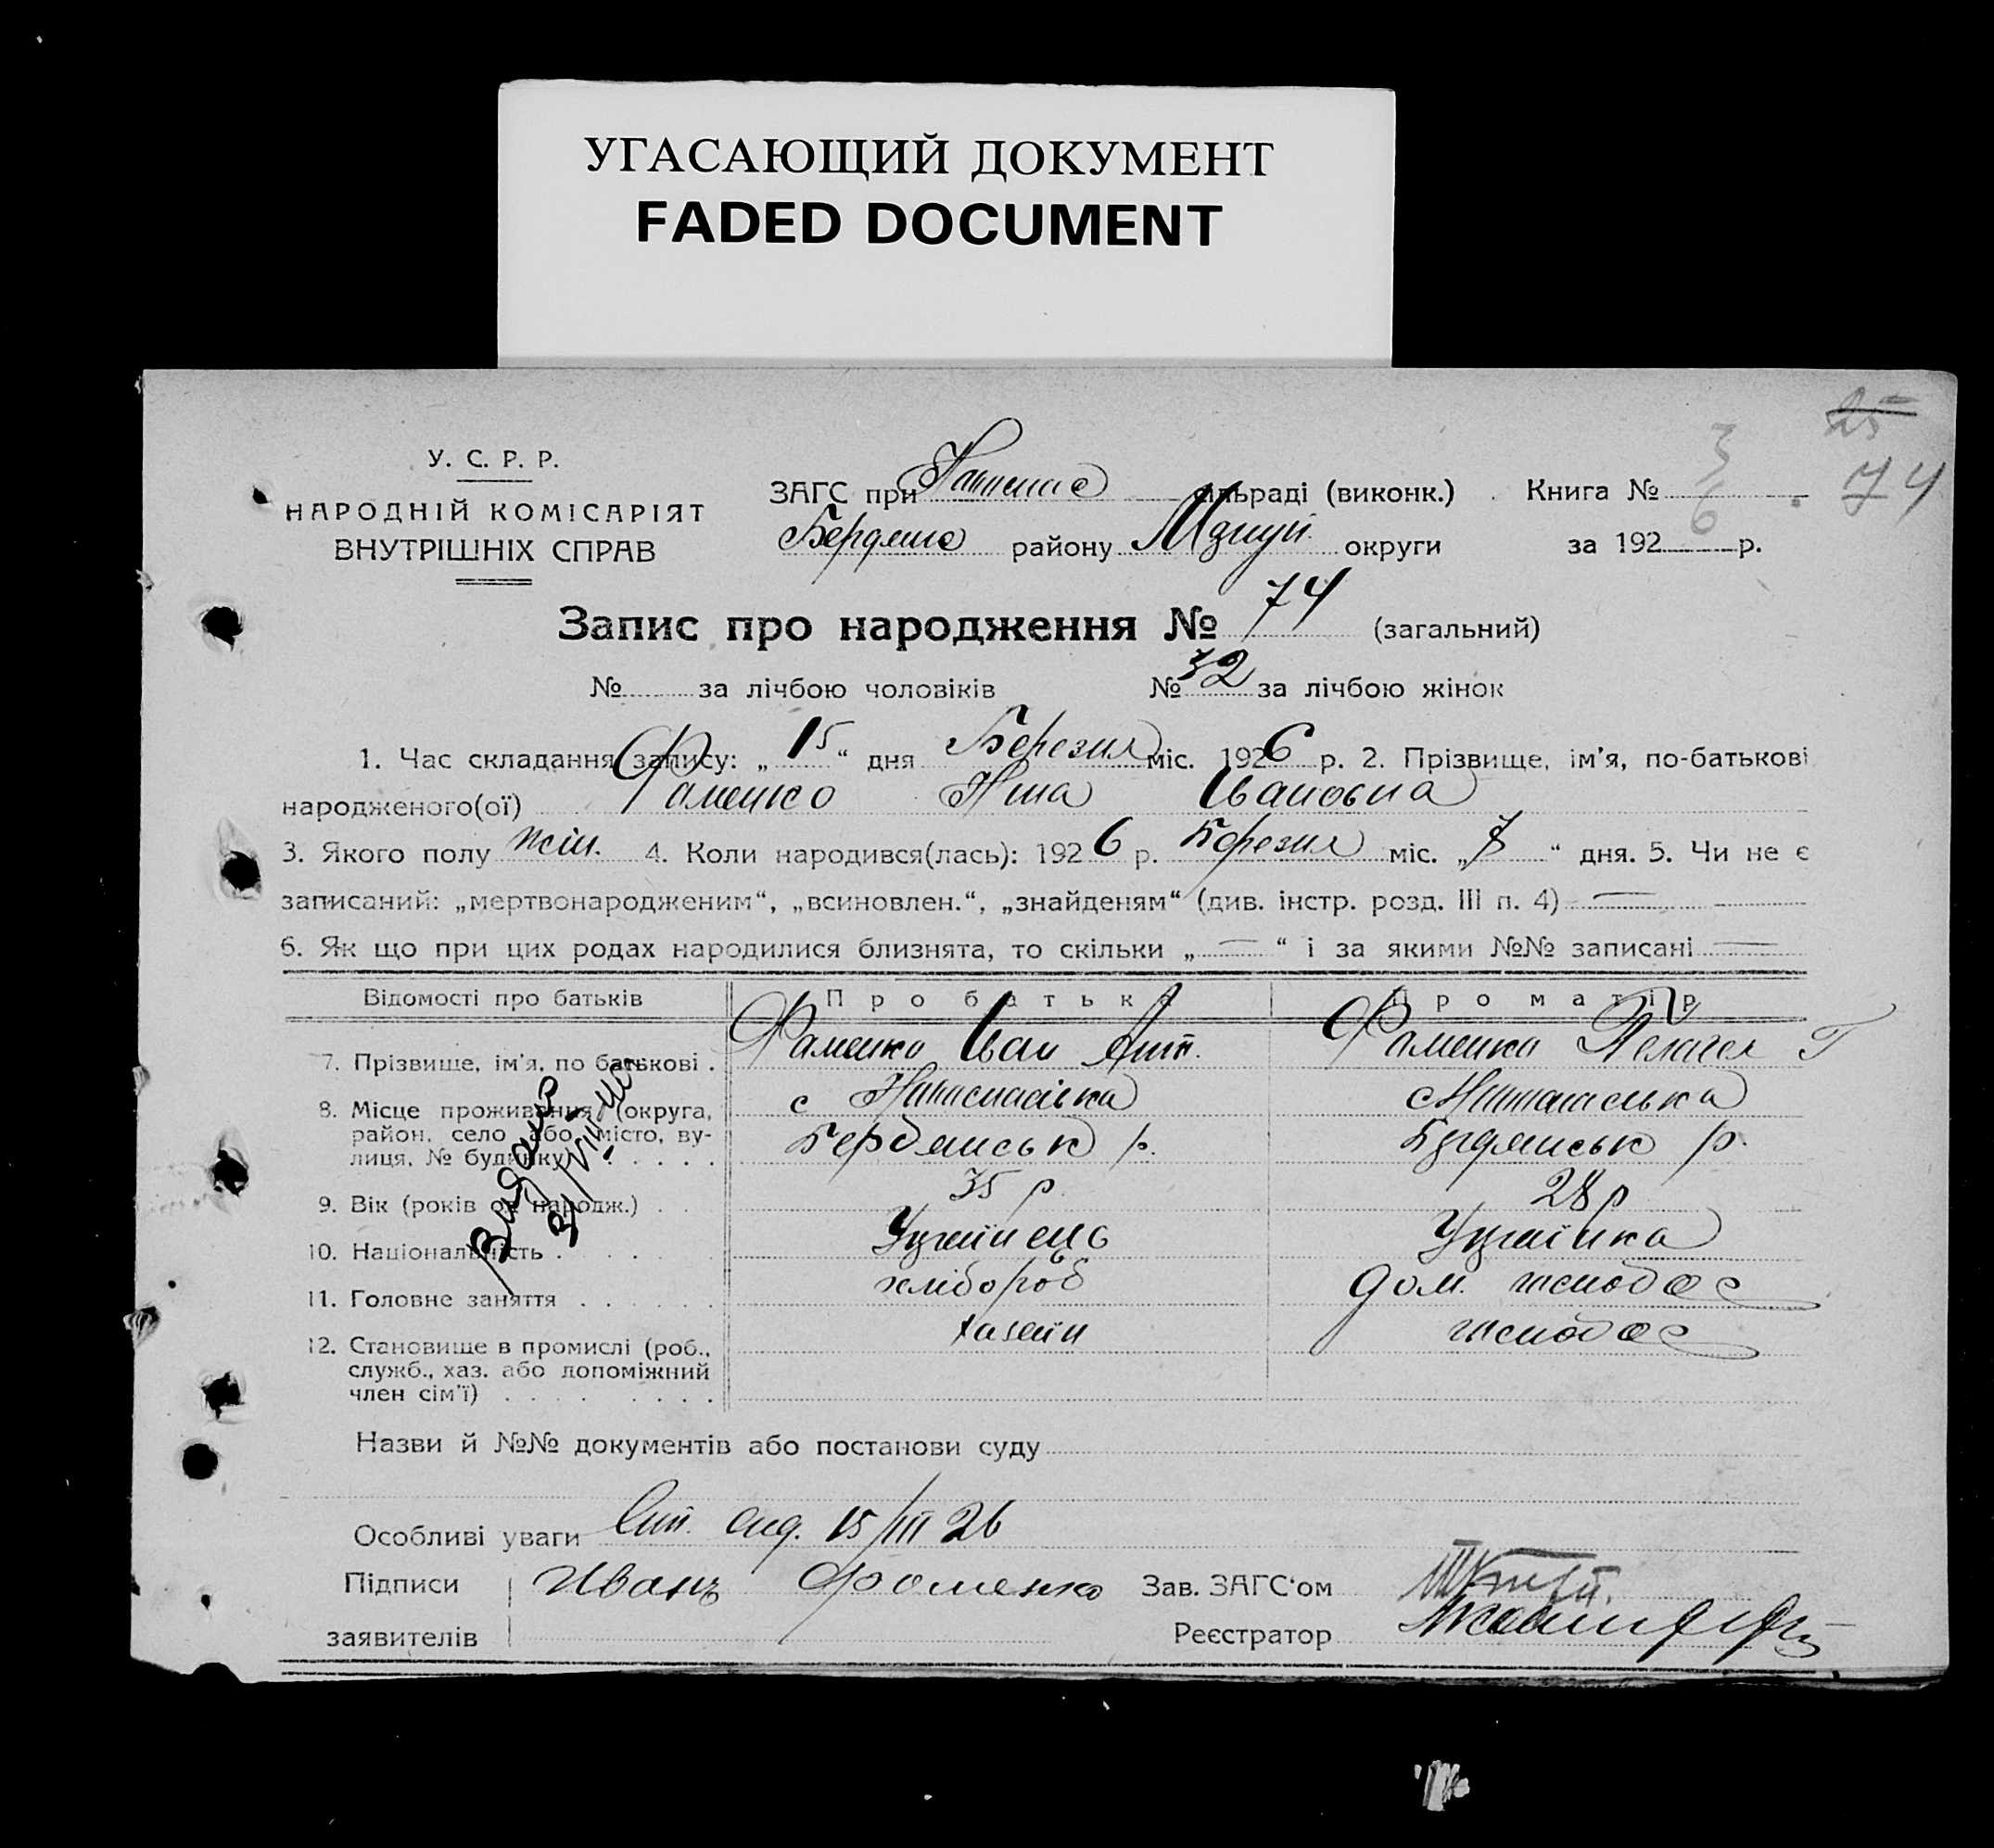 УГАСАЮЩИЙ ДОКУМЕНТ
FADED DOCUMENT
25
74
У. С. Р. Р.
НАРОДНІЙ КОМІСАРІЯТ
ВНУТРІШНІХ СПРАВ
ЗАГС при сільраді (виконк.) Книга № 3
району округи за 192 6 р.
Запис про народження № 74 (загальний)
№ за лічбою чоловіків № 32 за лічбою жінок
1. Час складання запису: „ 15 “ дня Березня міс. 1926 р. 2. Прізвище, ім’я, по-батькові
народженого(ої) Фаменко Нина Івановна
3. Якого полу жін. 4. Коли народився(лась): 192 6 р. Березня міс. „ “ дня. 5. Чи не є
записаний: „мертвонародженим“, „всиновлен.“, „знайденям“ (див. інстр. розд. III п. 4) —
6. Як що при цих родах народилися близнята, то скільки „ — “ і за якими №№ записані —
Відомості про батьків Про батька Про матір
7. Прізвище, ім’я, по батькові . Фаменко Іван Ант. Фаменко Пелагея Г
8. Місце проживання (округа, с
район, село або місто, ву- Бердянськ р. Бердянськ р.
лиця, № будинку) . . . . .
9. Вік (років од народж.) . . 35 р 28 р
10. Національність . . . . Українець Українка
11. Головне заняття . . . . . . хлібороб дом.
12. Становище в промислі (роб., хазеїн
служб., хаз. або допоміжний
член сім’ї) . . . . . . . .
Видано
Назви й №№ документів або постанови суду
Особливі уваги 15/III 26
Підписи Иванъ Фоменко Зав. ЗАГС‘ом
заявителів Реєстратор